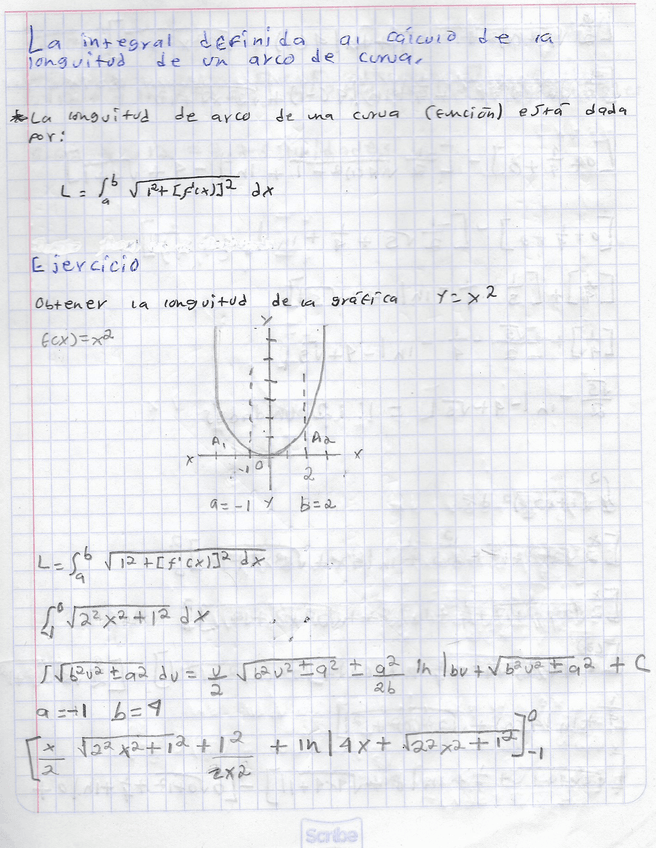 La integral definida al cálculo de la
longuitud de un arco de curva.
*La longuitud de arco de una curva (función) está dada
por:
L = ∫ₐᵇ √1²+[f'(x)]² dx
Ejercicio
Obtener la longuitud de la gráfica Y = x²
f(x)=x²
Y
A₁ A₂
x -1 0 2 x
a=-1 Y b=2
L=∫ₐᵇ √1²+[f'(x)]² dx
√2²x²+1² dx
∫√b²u²±a² du = u/2 √b²u²±a² ± a²/2b ln|bu+√b²u²±a² + C
b=4
[x/2 √2²x²+1² + 1²/2x2 + ln|4x+ √2²x2+1²]⁰₋₁
Scribe